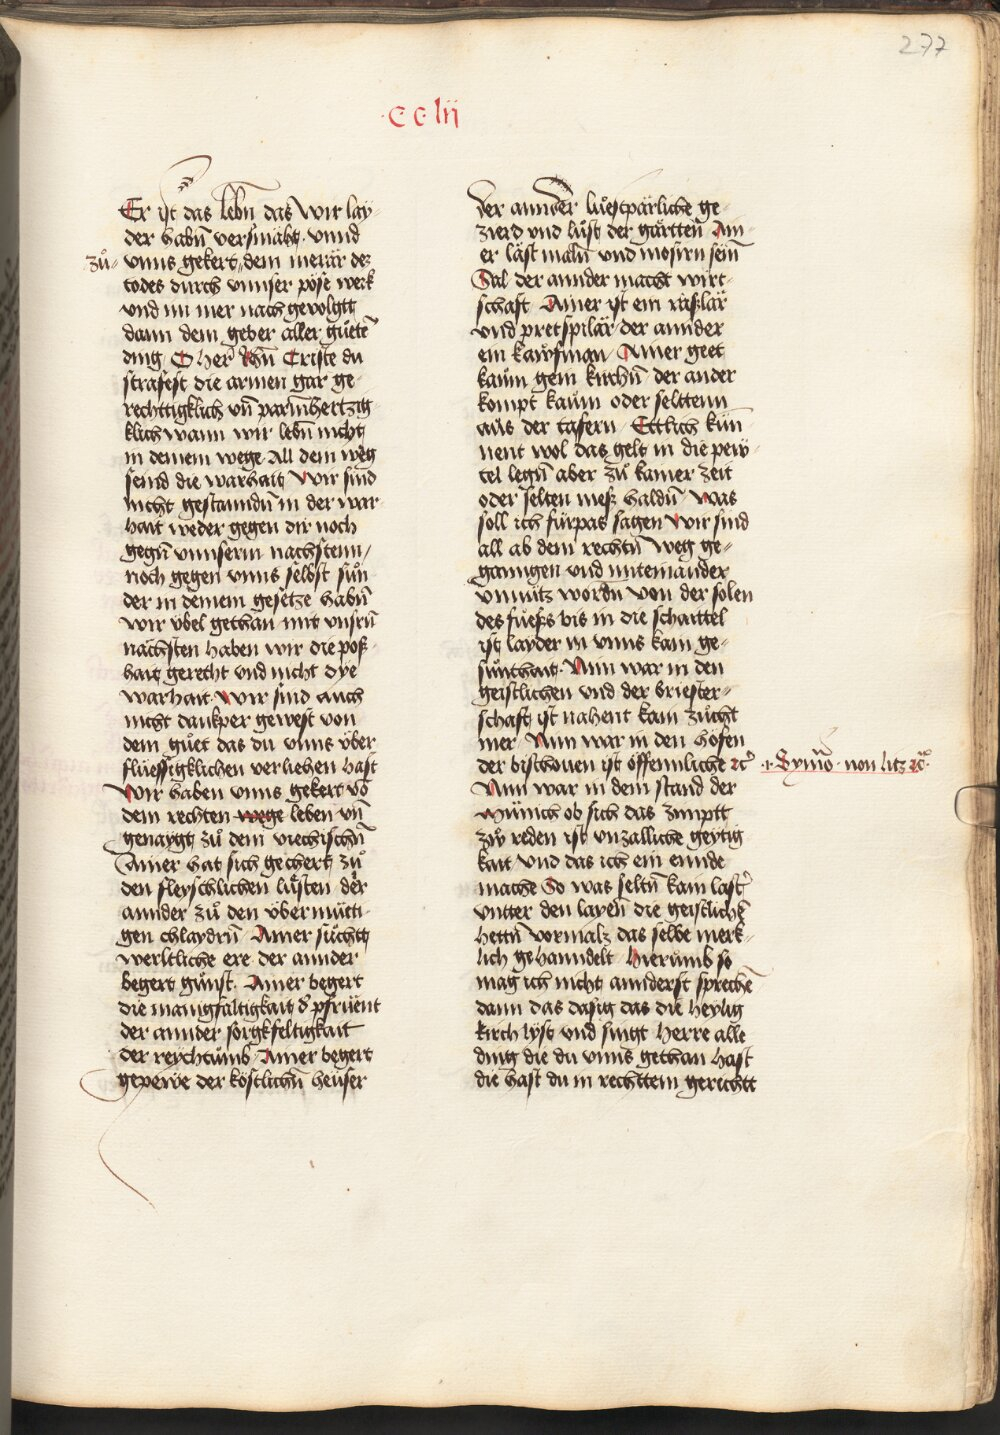 277
·c·c·lii
Er ist das lebn̄ das wir lay-
der habn̄ versmäht · vnnd
zů- vnns gekert, dem merär dez
todes durch vnnser pöse werk
vnd im mer nach gevolgtt
dann dem geber aller gůetē
ding O her Jhū Criste du
strafest die armen gar ge-
rechttigklich vn̄ parmhertzig
klich wann wir lebn̄ nicht
in deinem wege · All dein weg
seind die warhait wir sind
nicht gestanndn̄ in der war
hait weder gegen dir noch
gegn̄ vnnserm nachstenn /
noch gegen vnns selbst sun
der in deinem gesetze habn̄
wir v̈bel gethan mit vnsrn̄
nächsten haben wir die pos-
hait gerecht vnd nicht dye
warhait · wir sind auch
nicht dankper gewest von
dem gůet das du vnns v̈ber
flüessigklichen verlihen hast
wir haben vnns gekert vō
dem rechten wege leben vn̄
genaygt zů dem viechischn̄
Ainer hat sich gechert zů
den fleyschlichen lüsten der
annder zů den v̈bermüeti-
gen chlaydrn̄ Ainer süchtt
werltliche ere der annder
begert gůnst · Ainer begert
die manigfaltigkait d' pfrüent
der annder sorgkfeltigkait
der reychtůmb · Ainer begert
gepewe der köstlichn̄ heüser
der annder luestpärliche ge-
zierd vnd lust der gärtten̄ Ain-
er läst maln̄ vnd mosirn sein̄
Sal der annder macht wirt-
schaft Ainer ist ein raslär
vnd pretspilär der annder
ein kawfman / Ainer geet
kaum gein kirchn̄ der ander
kompt kaum oder selttenn
aus der tafern / Ettlich kün
nent wol das gelt in die pew-
tel legn̄ aber zů kainer zeit
oder selten mess haldn̄ was
soll ich fürpas sagen wir sind
all ab dem rechtn̄ weg ge-
ganngen vnd miteinander
vnnütz wordn̄ von der solen
des fuess bis in die schaittel
ist layder in vnns kain ge-
sunthait · Ann war in den
geistlichen vnd der briester-
schaft ist nahent kain zücht
mer · Ann war in den höfen
der bischouen ist öffennliche etc̄
·i· Symō · non litz etc̄
Ann war in dem stand der
Münich ob sich das zimptt
zw reden ist vnzalliche geytig
kait vnd das ich ein ennde
mache So was seltn̄ kain last'
vntter den layen̄ die geistlichē
hettn̄ vormalz das selbe merk-
lich gehanndelt hierumb so
mag ich nicht annderst sprechē
dann das dasig das die heylig
kirch lyst vnd singt herre alle
ding die du vnns gethan hast
die hast du in rechttem gerichtt